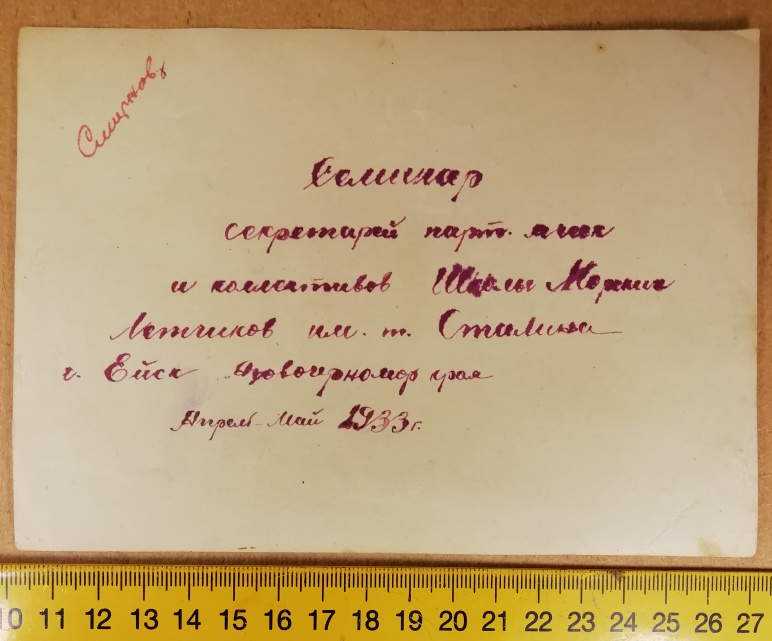 Смирнов
Семинар
секретарей парт. ячеек
и коллективов Школы Морских
Летчиков им. т. Сталина
г. Ейск Азовочерномор края
Апрель-Май 1933 г.
10 11 12 13 14 15 16 17 18 19 20 21 22 23 24 25 26 27